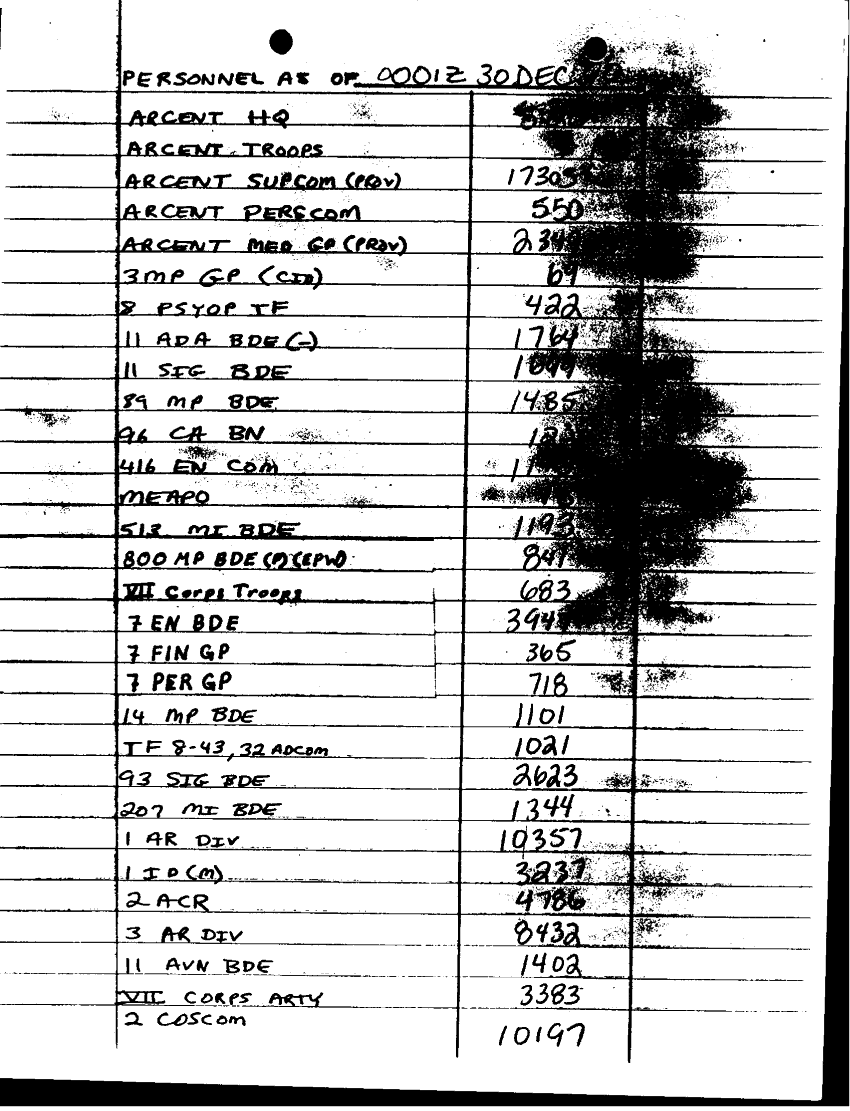 PERSONNEL AS OF 0001Z 30 DEC
ARCENT HQ
ARCENT TROOPS
ARCENT SUPCOM (PROV) 17305
ARCENT PERSCOM 550
ARCENT MED GP (PROV)
3 MP GP (CID) 69
8 PSYOP TF 422
11 ADA BDE (-) 1764
11 SIG BDE
89 MP BDE 1485
96 CA BN
416 EN COM
MEAPO
513 MI BDE 1193
800 MP BDE (P) (EPW) 841
VII Corps Troops 683
7 EN BDE
7 FIN GP 365
7 PER GP 718
14 MP BDE 1101
TF 8-43, 32 ADCOM 1021
93 SIG BDE 2623
207 MI BDE 1344
1 AR DIV 10357
1 ID (M) 3237
2 ACR 4786
3 AR DIV 8432
11 AVN BDE 1402
VII CORPS ARTY 3383
2 COSCOM 10197